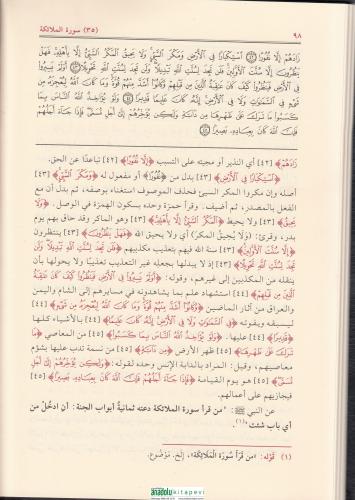 ٩٨ (٣٥) سورة الملائكة
زَادَهُمْ إِلَّا نُفُورًا ﴿٤٢﴾ اسْتِكْبَارًا فِي الْأَرْضِ وَمَكْرَ السَّيِّئِ وَلَا يَحِيقُ الْمَكْرُ السَّيِّئُ إِلَّا بِأَهْلِهِ فَهَلْ
يَنْظُرُونَ إِلَّا سُنَّتَ الْأَوَّلِينَ فَلَنْ تَجِدَ لِسُنَّتِ اللَّهِ تَبْدِيلًا وَلَنْ تَجِدَ لِسُنَّتِ اللَّهِ تَحْوِيلًا ﴿٤٣﴾ أَوَلَمْ يَسِيرُوا
فِي الْأَرْضِ فَيَنْظُرُوا كَيْفَ كَانَ عَاقِبَةُ الَّذِينَ مِنْ قَبْلِهِمْ وَكَانُوا أَشَدَّ مِنْهُمْ قُوَّةً وَمَا كَانَ اللَّهُ لِيُعْجِزَهُ مِنْ
شَيْءٍ فِي السَّمَاوَاتِ وَلَا فِي الْأَرْضِ إِنَّهُ كَانَ عَلِيمًا قَدِيرًا ﴿٤٤﴾ وَلَوْ يُؤَاخِذُ اللَّهُ النَّاسَ بِمَا
كَسَبُوا مَا تَرَكَ عَلَى ظَهْرِهَا مِنْ دَابَّةٍ وَلَكِنْ يُؤَخِّرُهُمْ إِلَى أَجَلٍ مُسَمًّى فَإِذَا جَاءَ أَجَلُهُمْ
فَإِنَّ اللَّهَ كَانَ بِعِبَادِهِ بَصِيرًا ﴿٤٥﴾
﴿زَادَهُمْ﴾ [٤٢] أي النذير أو مجيئه على التسبب ﴿إِلَّا نُفُورًا﴾ [٤٢] تباعدًا عن الحق.
﴿اسْتِكْبَارًا فِي الْأَرْضِ﴾ [٤٣] بدل من ﴿نُفُورًا﴾ أو مفعول له ﴿وَمَكْرَ السَّيِّئِ﴾ [٤٣]
أصله وإن مكروا المكر السيئ فحذف الموصوف استغناء بوصفه، ثم بدل أن مع
الفعل بالمصدر، ثم أضيف. وقرأ حمزة وحده بسكون الهمزة في الوصل. ﴿وَلَا
يَحِيقُ﴾ [٤٣] ولا يحيط ﴿الْمَكْرُ السَّيِّئُ إِلَّا بِأَهْلِهِ﴾ [٤٣] وهو الماكر وقد حاق بهم يوم
بدر، وقرئ: (وَلَا يُحِيقُ الْمَكْرَ) أي ولا يحيق الله ﴿فَهَلْ يَنْظُرُونَ﴾ [٤٣] ينتظرون
﴿إِلَّا سُنَّتَ الْأَوَّلِينَ﴾ [٤٣] سنة الله فيهم بتعذيب مكذبيهم ﴿فَلَنْ تَجِدَ لِسُنَّتِ اللَّهِ تَبْدِيلًا وَلَنْ
تَجِدَ لِسُنَّتِ اللَّهِ تَحْوِيلًا﴾ [٤٣] إذ لا يبدلها بجعله غير التعذيب تعذيبا ولا يحولها بأن
ينقله من المكذبين إلى غيرهم، وقوله: ﴿أَوَلَمْ يَسِيرُوا فِي الْأَرْضِ فَيَنْظُرُوا كَيْفَ كَانَ عَاقِبَةُ
الَّذِينَ مِنْ قَبْلِهِمْ﴾ [٤٤] استشهاد علم بما يشاهدونه في مسايرهم إلى الشام واليمن
والعراق من آثار الماضين ﴿وَكَانُوا أَشَدَّ مِنْهُمْ قُوَّةً وَمَا كَانَ اللَّهُ لِيُعْجِزَهُ مِنْ شَيْءٍ﴾ [٤٤]
ليسبقه ويفوته ﴿فِي السَّمَاوَاتِ وَلَا فِي الْأَرْضِ إِنَّهُ كَانَ عَلِيمًا﴾ [٤٤] بالأشياء كلها
﴿قَدِيرًا﴾ [٤٤] عليها. ﴿وَلَوْ يُؤَاخِذُ اللَّهُ النَّاسَ بِمَا كَسَبُوا﴾ [٤٥] من المعاصي ﴿مَا
تَرَكَ عَلَى ظَهْرِهَا﴾ [٤٥] ظهر الأرض ﴿مِنْ دَابَّةٍ﴾ [٤٥] من نسمة تدب عليها بشؤم
معاصيهم، وقيل: المراد بالدابة الإنس وحده لقوله: ﴿وَلَكِنْ يُؤَخِّرُهُمْ إِلَى أَجَلٍ
مُسَمًّى﴾ [٤٥] هو يوم القيامة ﴿فَإِذَا جَاءَ أَجَلُهُمْ فَإِنَّ اللَّهَ كَانَ بِعِبَادِهِ بَصِيرًا﴾ [٤٥]
فيجازيهم على أعمالهم.
عن النبي ﷺ: «من قرأ سورة الملائكة دعته ثمانيةُ أبواب الجنة: أن ادخُلْ من
أي باب شئت»(١).
(١) قَوْلُه: «من قرأَ سُورَةَ المَلَائِكَةِ»، إلخ. مَوْضُوع.
anadolukitapevi